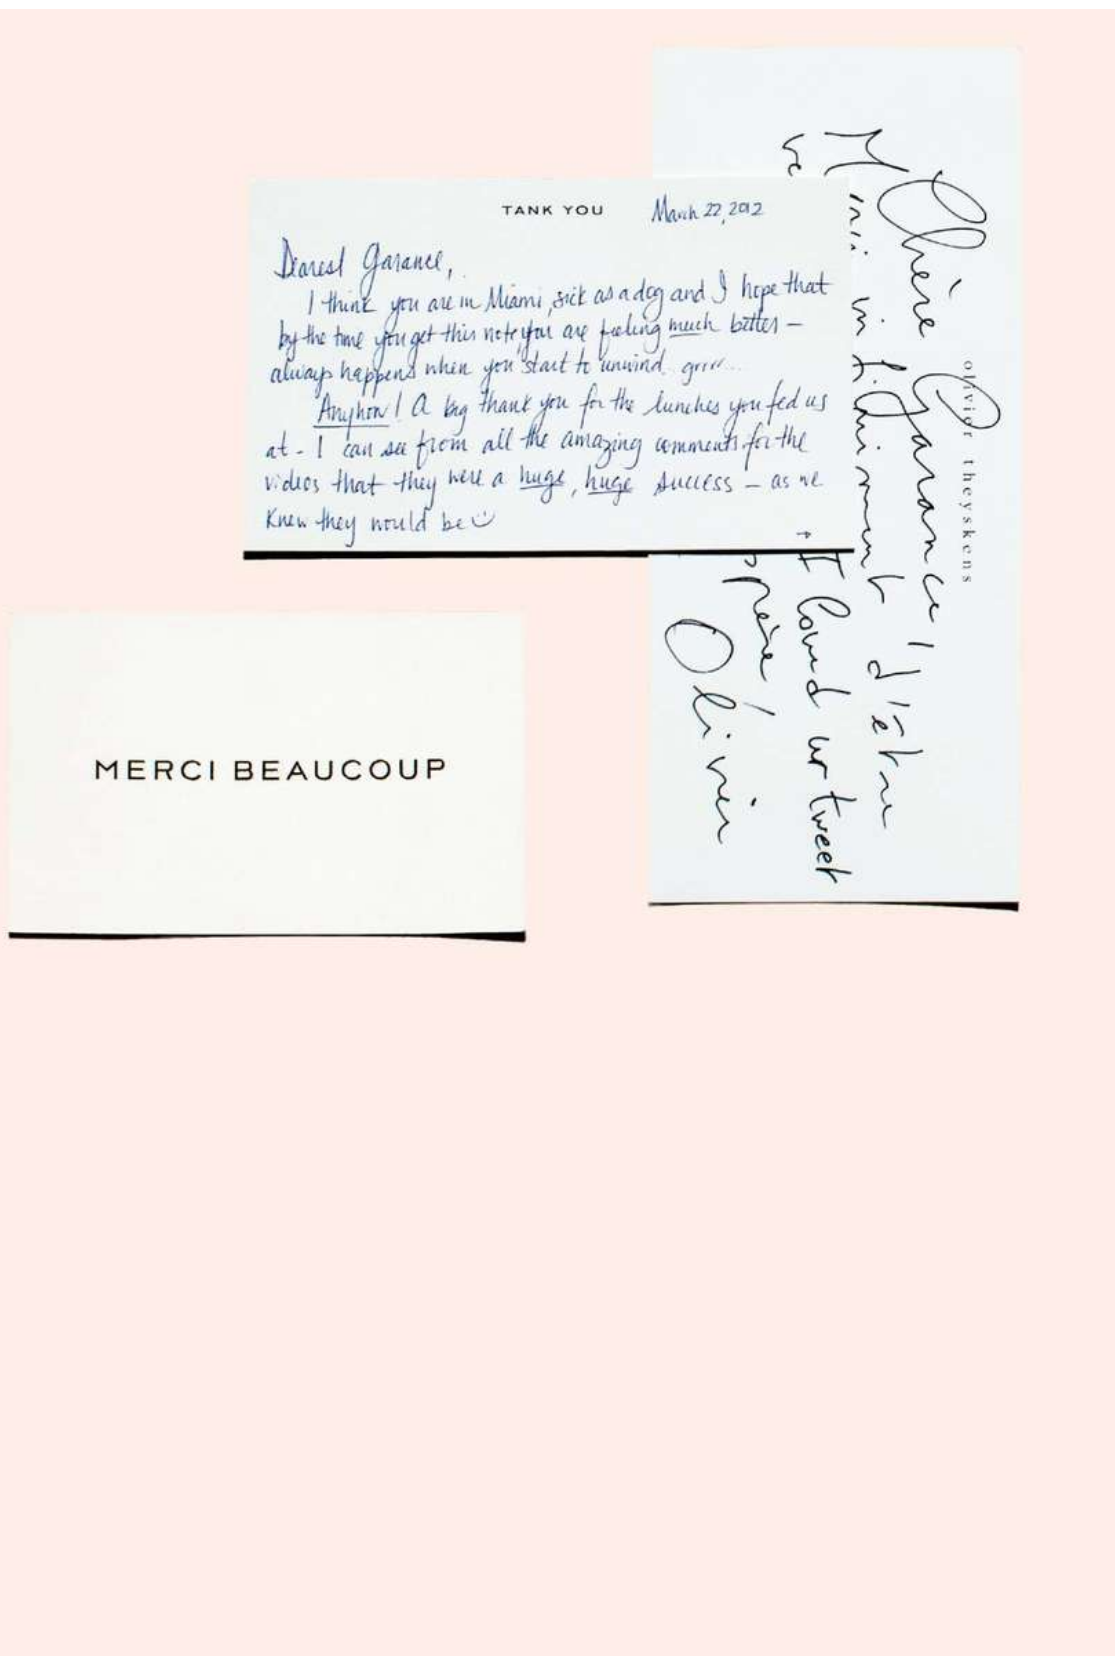 TANK YOU
March 22, 2012
Dearest Garance,
I think you are in Miami, sick as a dog and I hope that
by the time you get this note, you are feeling much better –
always happens when you start to unwind.. grrr...
Anyhow! A big thank you for the lunches you fed us
at - I can see from all the amazing comments for the
videos that they were a huge, huge success – as we
knew they would be
MERCI BEAUCOUP
olivier theyskens
Chère Garance,
infiniment d'être
I loved ur tweet
Olivier